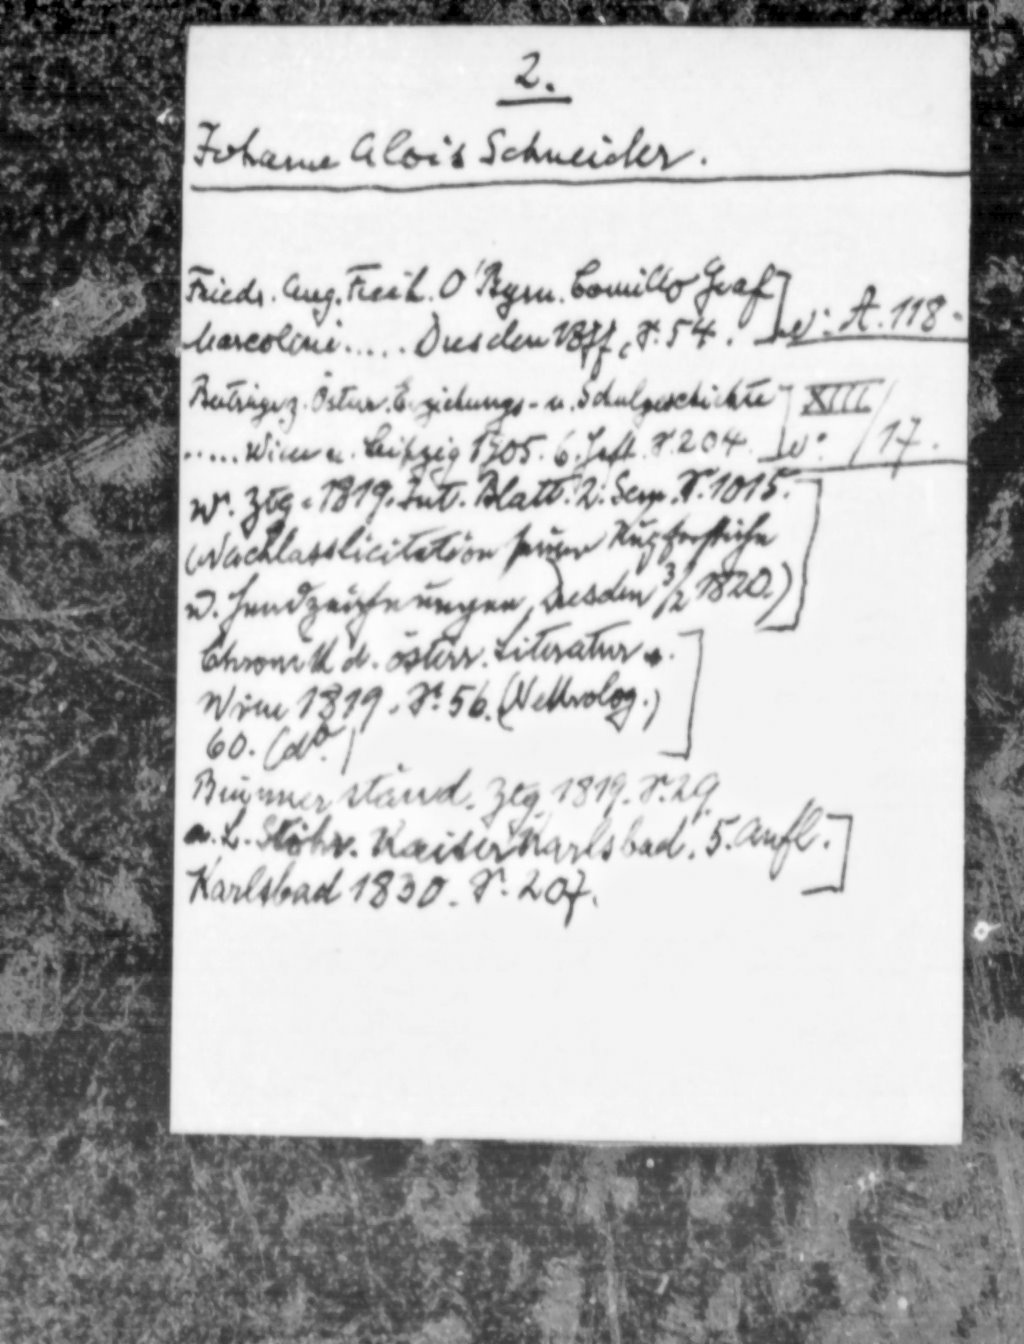 2.
Johann Alois Schneider.
Friedr. Aug. Freih. O'Byrn. Camillo Graf
Marcolini ..... Dresden 1877, S. 54. v: A. 118.
Beiträge z. Österr. Erziehungs- u. Schulgeschichte XIII/
..... Wien u. Leipzig 1905. 6. Heft. S. 204. v: 17.
W. Ztg. 1819. Int. Blatt. 2. Sem. S. 1015.
(Nachlasslicitation seiner Kupferstiche
u. Handzeichnungen, Dresden 3/2 1820.)
Chronik d. österr. Literatur.
Wien 1819. S. 56. (Nekrolog.)
60. (do.)
Brünner ständ. Ztg 1819. S. 29
A. L. Stöhr. Kaiser Karlsbad. 5. Aufl.
Karlsbad 1830. S. 207.